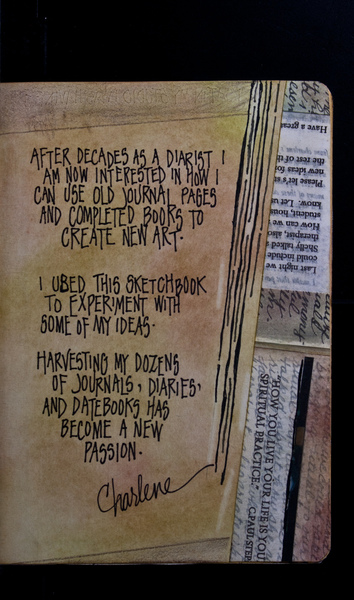 AFTER DECADES AS A DIARIST I
AM NOW INTERESTED IN HOW I
CAN USE OLD JOURNAL PAGES
AND COMPLETED BOOKS TO
CREATE NEW ART.
I USED THIS SKETCHBOOK
TO EXPERIMENT WITH
SOME OF MY IDEAS.
HARVESTING MY DOZENS
OF JOURNALS, DIARIES,
AND DATEBOOKS HAS
BECOME A NEW
PASSION.
Charlene
Last night we
could include
Shelly talked
therapist, also
How can we
student, hount
know. Let u
Please let's a
new ideas fo
the rest of the
Have a great
"HOW YOU LIVE YOUR LIFE IS YOU
SPIRITUAL PRACTICE."